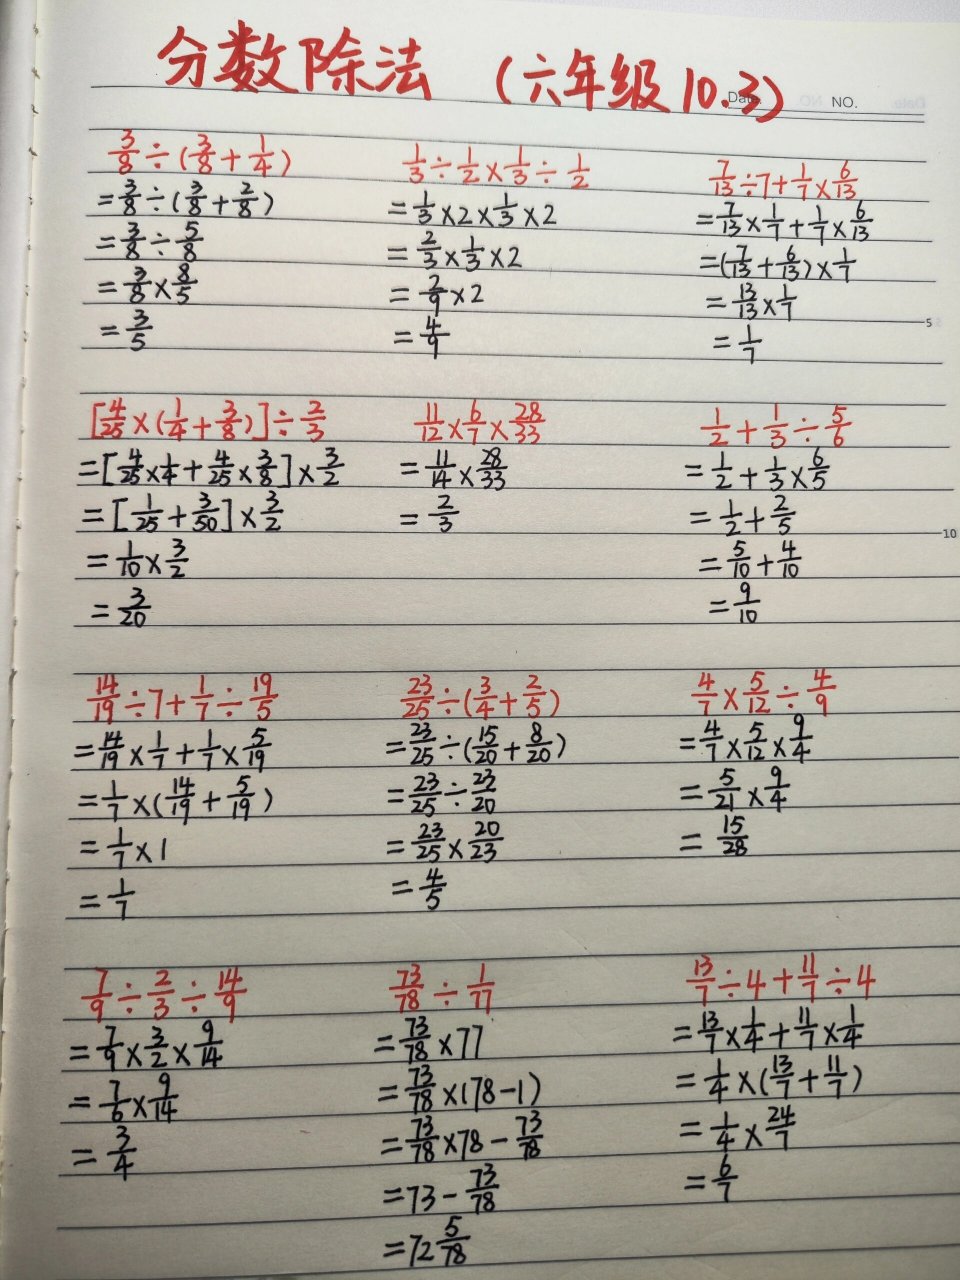 分数除法 (六年级10.3)
Date. NO.
3/8÷(3/8+1/4)
=3/8÷(3/8+2/8)
=3/8÷5/8
=3/8×8/5
=3/5
1/3÷1/2×1/3÷1/2
=1/3×2×1/3×2
=2/3×1/3×2
=2/9×2
=4/9
7/13÷7+1/7×6/13
=7/13×1/7+1/7×6/13
=(7/13+6/13)×1/7
=13/13×1/7
=1/7
5
[4/25×(1/4+3/8)]÷2/3
=[4/25×1/4+4/25×3/8]×3/2
=[1/25+3/50]×3/2
=1/10×3/2
=3/20
11/12×6/7×28/33
=11/14×28/33
=2/3
1/2+1/3÷5/6
=1/2+1/3×6/5
=1/2+2/5
=5/10+4/10
=9/10
10
14/19÷7+1/7÷19/5
=14/19×1/7+1/7×5/19
=1/7×(14/19+5/19)
=1/7×1
=1/7
23/25÷(3/4+2/5)
=23/25÷(15/20+8/20)
=23/25÷23/20
=23/25×20/23
=4/5
4/7×5/12÷4/9
=4/7×5/12×9/4
=5/21×9/4
=15/28
7/9÷2/3÷14/9
=7/9×3/2×9/14
=7/6×9/14
=3/4
73/78÷1/77
=73/78×77
=73/78×(78-1)
=73/78×78-73/78
=73-73/78
=72 5/78
13/7÷4+11/7÷4
=13/7×1/4+11/7×1/4
=1/4×(13/7+11/7)
=1/4×24/7
=6/7